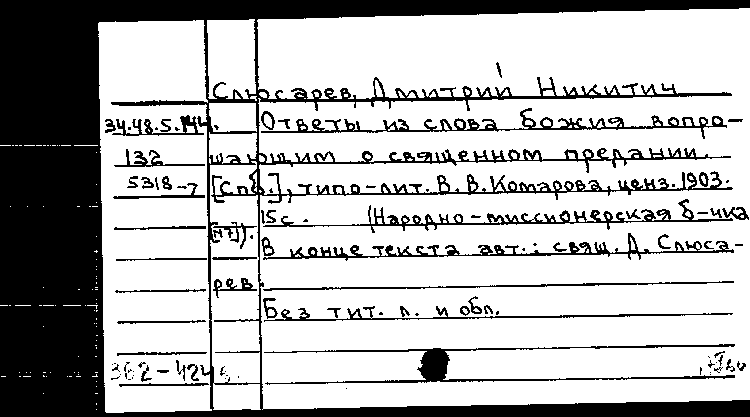 Слюсарев, Дмитрий Никитич
34.48.5.144. Ответы из слова Божия вопро-
132 шающим о священном предании.
5318-7 [Спб.], типо-лит. В. В. Комарова, ценз. 1903.
15с. (Народно-миссионерская б-чка
[№7]).
В конце текста авт.: свящ. Д. Слюса-
рев.
Без тит. л. и обл.
362-424